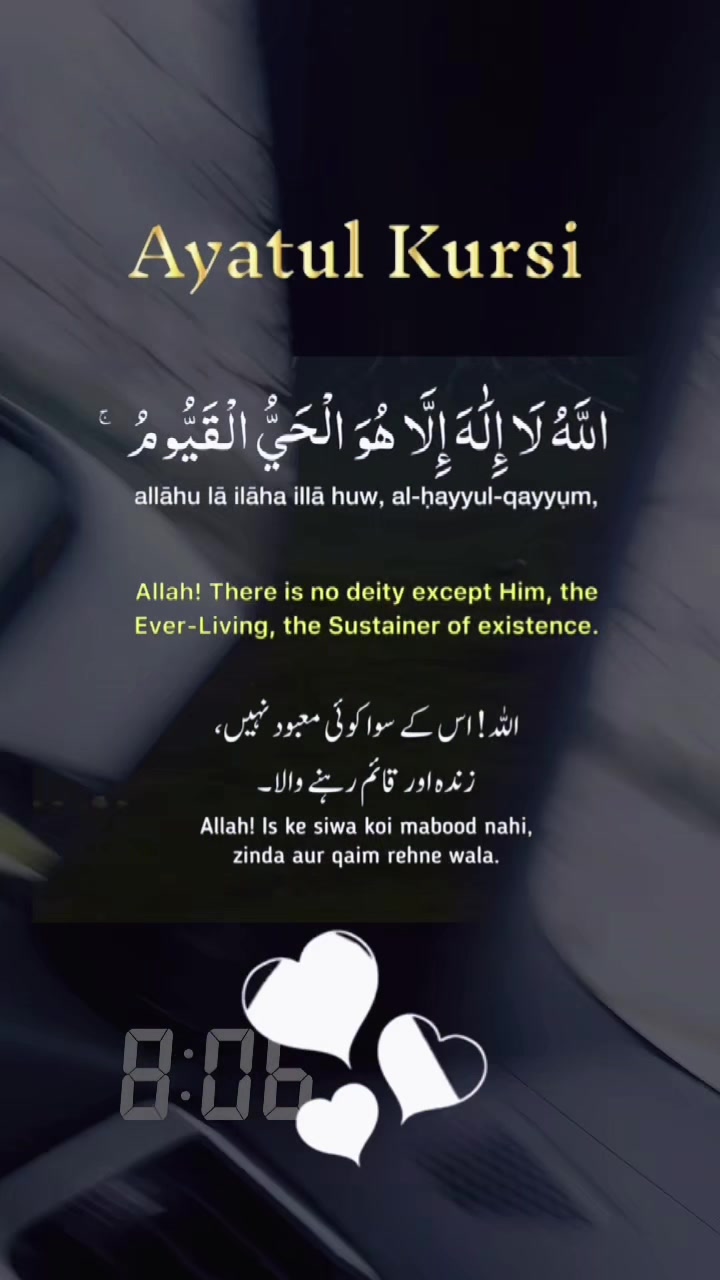 Ayatul Kursi
اللَّهُ لَا إِلَٰهَ إِلَّا هُوَ الْحَيُّ الْقَيُّومُ ۚ
allāhu lā ilāha illā huw, al-ḥayyul-qayyụm,
Allah! There is no deity except Him, the
Ever-Living, the Sustainer of existence.
اللہ! اس کے سوا کوئی معبود نہیں،
زندہ اور قائم رہنے والا۔
Allah! Is ke siwa koi mabood nahi,
zinda aur qaim rehne wala.
8:06